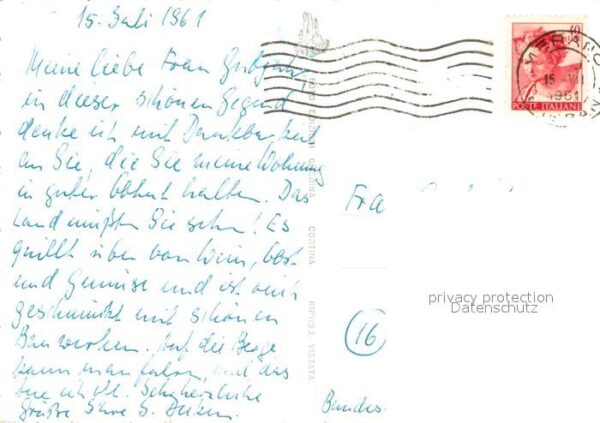 15. Juli 1961
Meine liebe Frau
in dieser schönen Gegend
denke ich mit Dankbarkeit
an Sie, die Sie meine Wohnung
in guter Obhut halten. Das
Land müßten Sie sehn! Es
quillt über von Wein, Obst
und Gemüse und ist reich
geschmückt mit schönen
Bauwerken. Auf die Berge
kann man fahren, und das
tue ich oft.
Grüße Ihre S.
MERANO
15. VII
1961
POSTE ITALIANE
FOTO EDIZIONI GHEDINA
CORTINA
RIPROD. VIETATA
privacy protection
Datenschutz
16
Bundes.